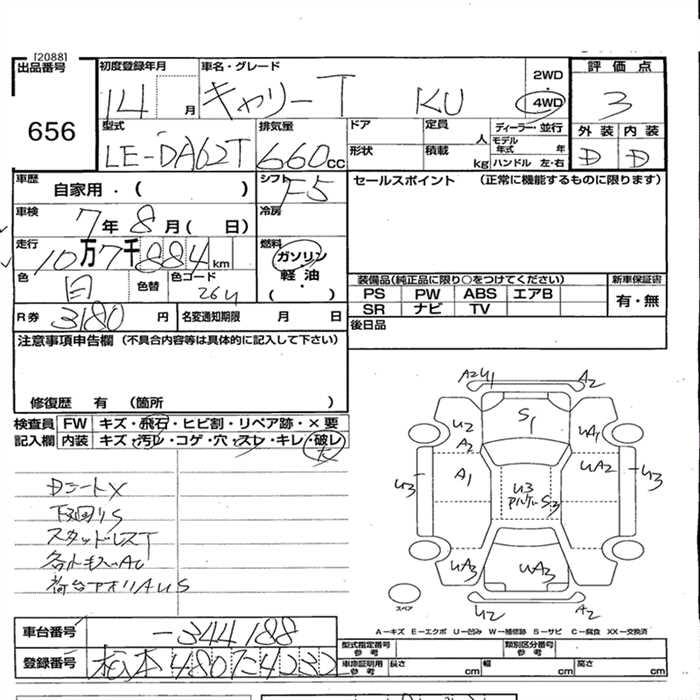 [2088]
出品番号
656
初度登録年月
14 月
車名・グレード
キャリー T KU
2WD
4WD
評価点
3
外装 内装
D D
型式
LE-DA62T
排気量
660cc
ドア
形状
定員 人
積載 kg
ディーラー・並行
モデル年式 年
ハンドル 左・右
車歴
自家用・( )
シフト
F5
セールスポイント (正常に機能するものに限ります)
車検
7年 8月( 日)
冷房
走行
10万7千884km
燃料
ガソリン
・
軽油
( )
色
白
色替
色コード
26U
装備品(純正品に限り○をつけてください)
PS PW ABS エアB
SR ナビ TV
新車保証書
有・無
R券 3180 円
名変通知期限 月 日
後日品
注意事項申告欄 (不具合内容等は具体的に記入して下さい)
修復歴 有 (箇所 )
検査員 FW キズ・飛石・ヒビ割・リペア跡・×要
記入欄 内装 キズ・汚レ・コゲ・穴・スレ・キレ・破レ
大
DシートX
下回りS
スタッドレスT
荷台アオリAUS
A2U1
A2
S1
U2
A2
UA1
A1
UA2
U3
U3
U3
S3
UA3
UA3
UA3
U2
A2
スペア
A-キズ E-エクボ U-凹み W-補修跡 S-サビ C-腐食 XX-交換済
車台番号 -344188
登録番号 480 4232
型式指定番号
参考
類別区分番号
参考
車庫証明用
参考
長さ cm 幅 cm 高さ cm